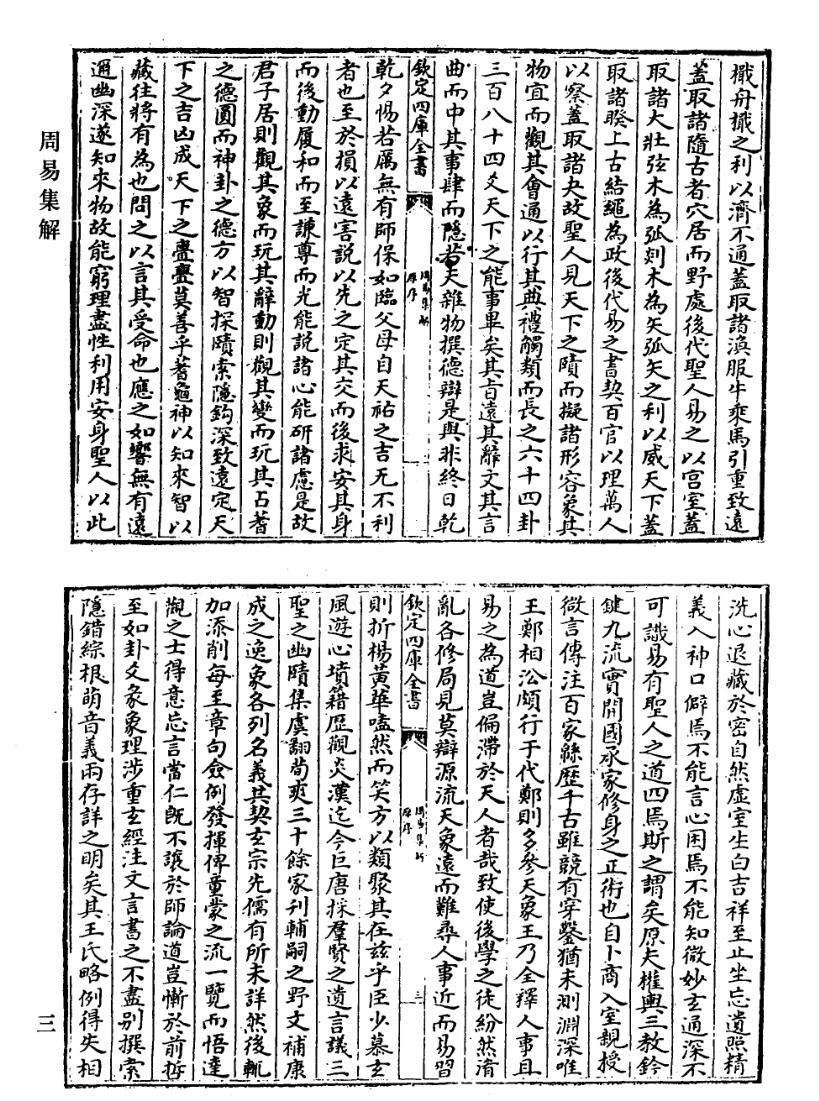 楫舟楫之利以濟不通蓋取諸渙服牛乘馬引重致遠
蓋取諸隨古者穴居而野處後代聖人易之以宫室蓋
取諸大壯弦木為弧剡木為矢弧矢之利以威天下蓋
取諸睽上古結繩為政後代易之書契百官以理萬人
以察蓋取諸夬故聖人見天下之賾而擬諸形容象其
物宜而觀其會通以行其典禮觸類而長之六十四卦
三百八十四爻天下之能事畢矣其㫖遠其辭文其言
曲而中其事肆而隱若夫雜物撰德辯是與非終日乾
欽定四庫全書
周易集解
原序
乾夕惕若厲無有師保如臨父母自天祐之吉无不利
者也至於損以遠害說以先之定其交而後求安其身
而後動履和而至謙尊而光能說諸心能研諸慮是故
君子居則觀其象而玩其辭動則觀其變而玩其占蓍
之德圓而神卦之德方以智探賾索隱鈎深致遠定天
下之吉凶成天下之亹亹莫善乎蓍龜神以知來智以
藏往將有為也問之以言其受命也應之如響無有遠
邇幽深遂知來物故能窮理盡性利用安身聖人以此
周易集解
洗心退藏於密自然虚室生白吉祥至止坐忘遺照精
義入神口僻焉不能言心困焉不能知微妙玄通深不
可識易有聖人之道四焉斯之謂矣原夫權輿三教鈐
鍵九流實開國承家修身之正術也自卜商入室親授
微言傳注百家緜歴千古雖競有穿鑿猶未測淵深唯
王鄭相沿頗行于代鄭則多參天象王乃全釋人事且
易之為道豈偏滯於天人者哉致使後學之徒紛然淆
亂各修局見莫辯源流天象遠而難尋人事近而易習
欽定四庫全書
周易集解
原序
三
則折楊黄華嗑然而笑方以類聚其在兹乎臣少慕玄
風遊心墳籍歴觀炎漢迄今巨唐採羣賢之遺言議三
聖之幽賾集虞翻荀爽三十餘家刋輔嗣之野文補康
成之逸象各列名義共契玄宗先儒有所未詳然後輒
加添削每至章句僉例發揮俾童蒙之流一覽而悟達
觀之士得意忘言當仁既不讓於師論道豈慚於前哲
至如卦爻彖象理涉重玄經注文言書之不盡别撰索
隱錯綜根萌音義兩存詳之明矣其王氏略例得失相
三